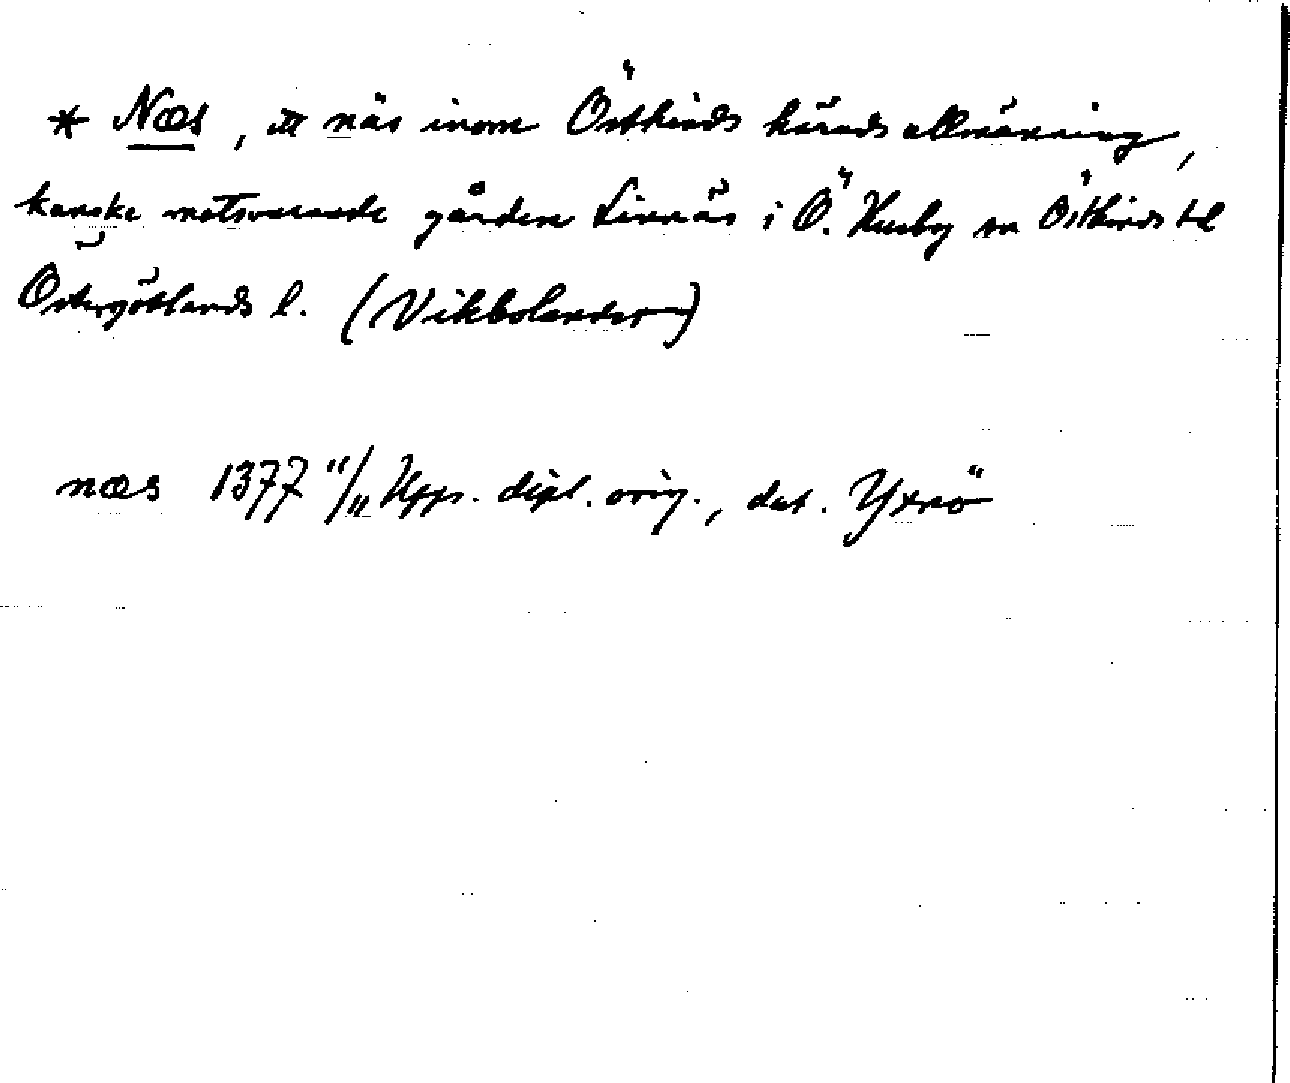 * Næs, ett näs inom Östkinds häradsallmänning,
kanske motsvarande gården Linnäs i Ö. Husby sn Östkinds hd
Östergötlands l. (Vikbolandet)
næs 1377 11/11 Upps. dipl. orig., dat. Yxnö